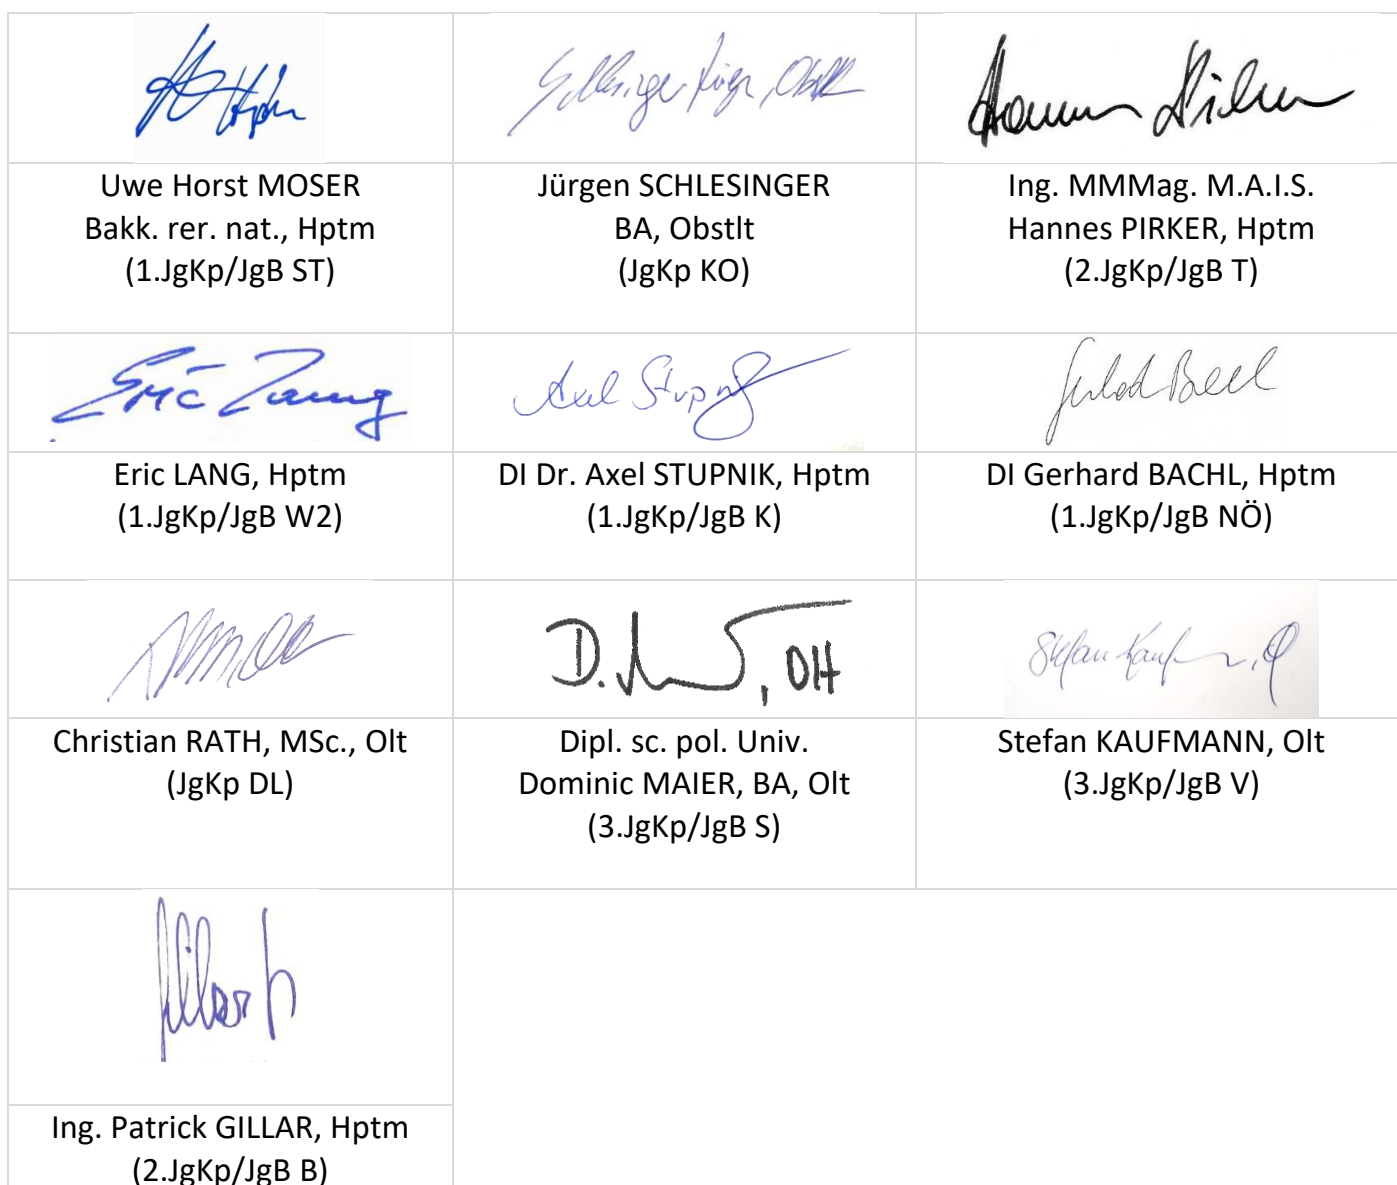 Hptm
Schlesinger Jürgen, Obstlt
Hannes Pirker
Uwe Horst MOSER
Bakk. rer. nat., Hptm
(1.JgKp/JgB ST)
Jürgen SCHLESINGER
BA, Obstlt
(JgKp KO)
Ing. MMMag. M.A.I.S.
Hannes PIRKER, Hptm
(2.JgKp/JgB T)
Eric Lang
Axel Stupnik
Gerhard Bachl
Eric LANG, Hptm
(1.JgKp/JgB W2)
DI Dr. Axel STUPNIK, Hptm
(1.JgKp/JgB K)
DI Gerhard BACHL, Hptm
(1.JgKp/JgB NÖ)
D. , Olt
Stefan Kaufmann,
Christian RATH, MSc., Olt
(JgKp DL)
Dipl. sc. pol. Univ.
Dominic MAIER, BA, Olt
(3.JgKp/JgB S)
Stefan KAUFMANN, Olt
(3.JgKp/JgB V)
Ing. Patrick GILLAR, Hptm
(2.JgKp/JgB B)